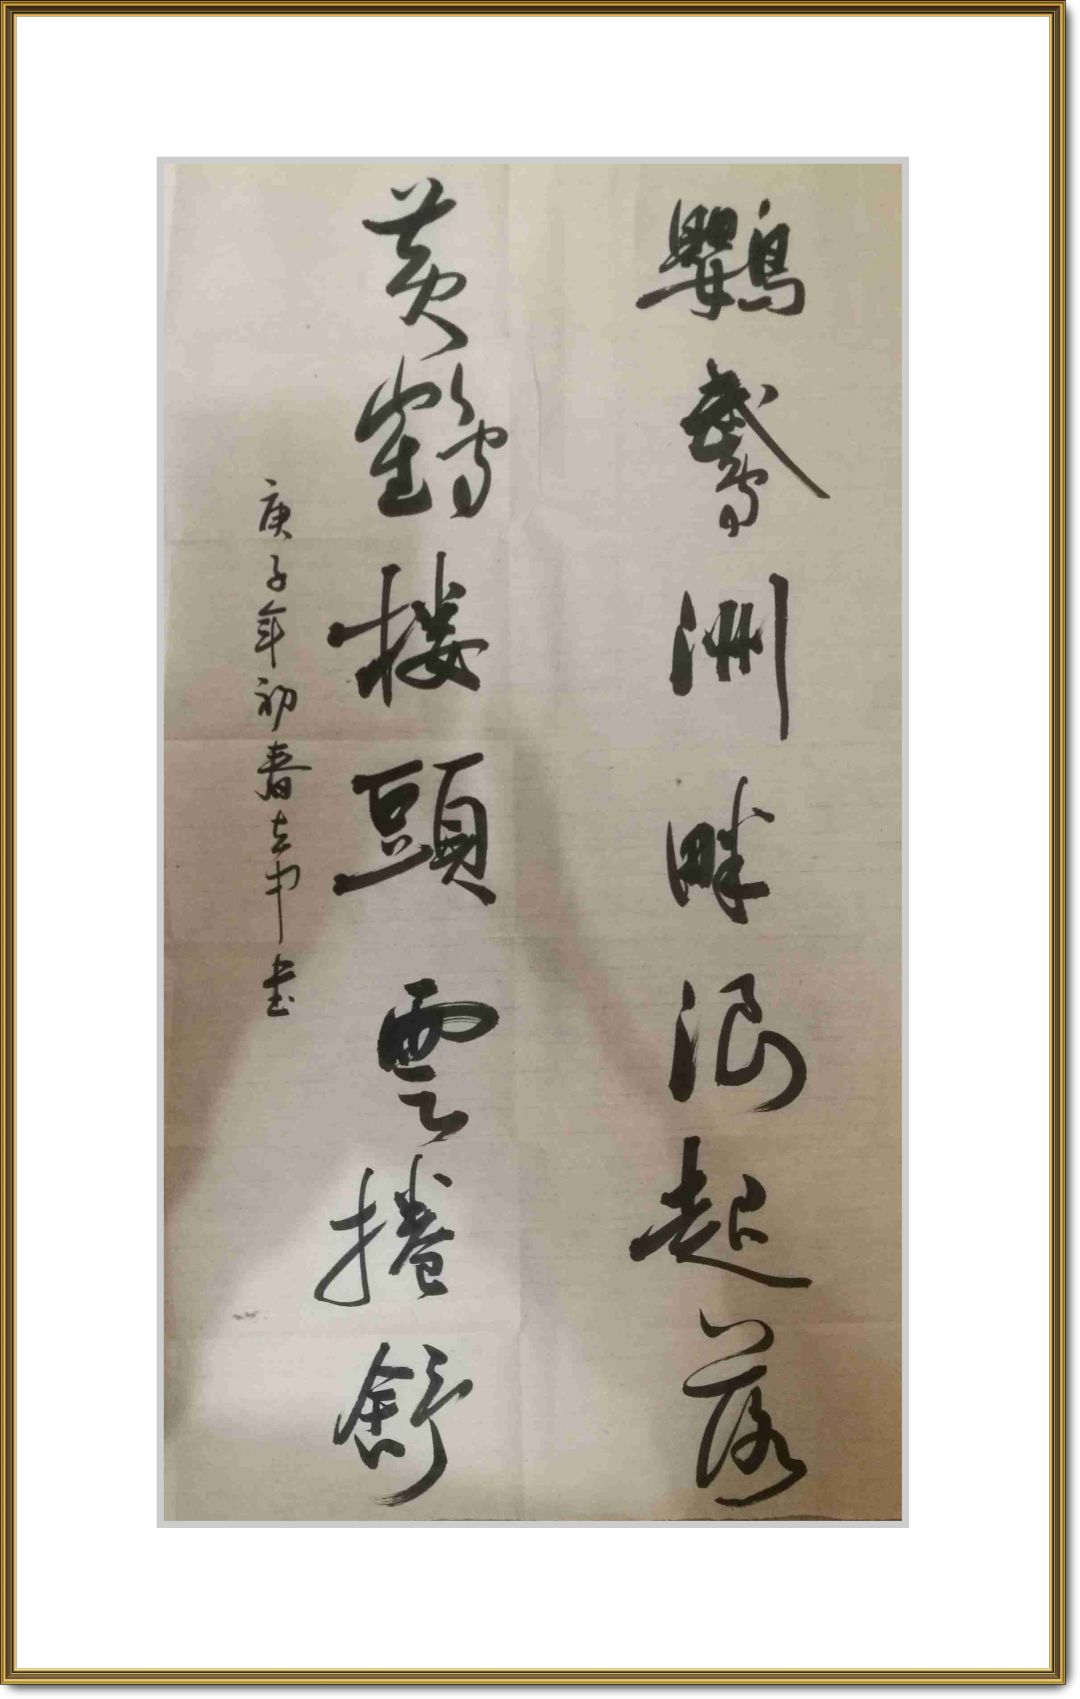 鸚鵡洲畔浪起落
黃鶴樓頭雲捲舒
庚子年初春志中书